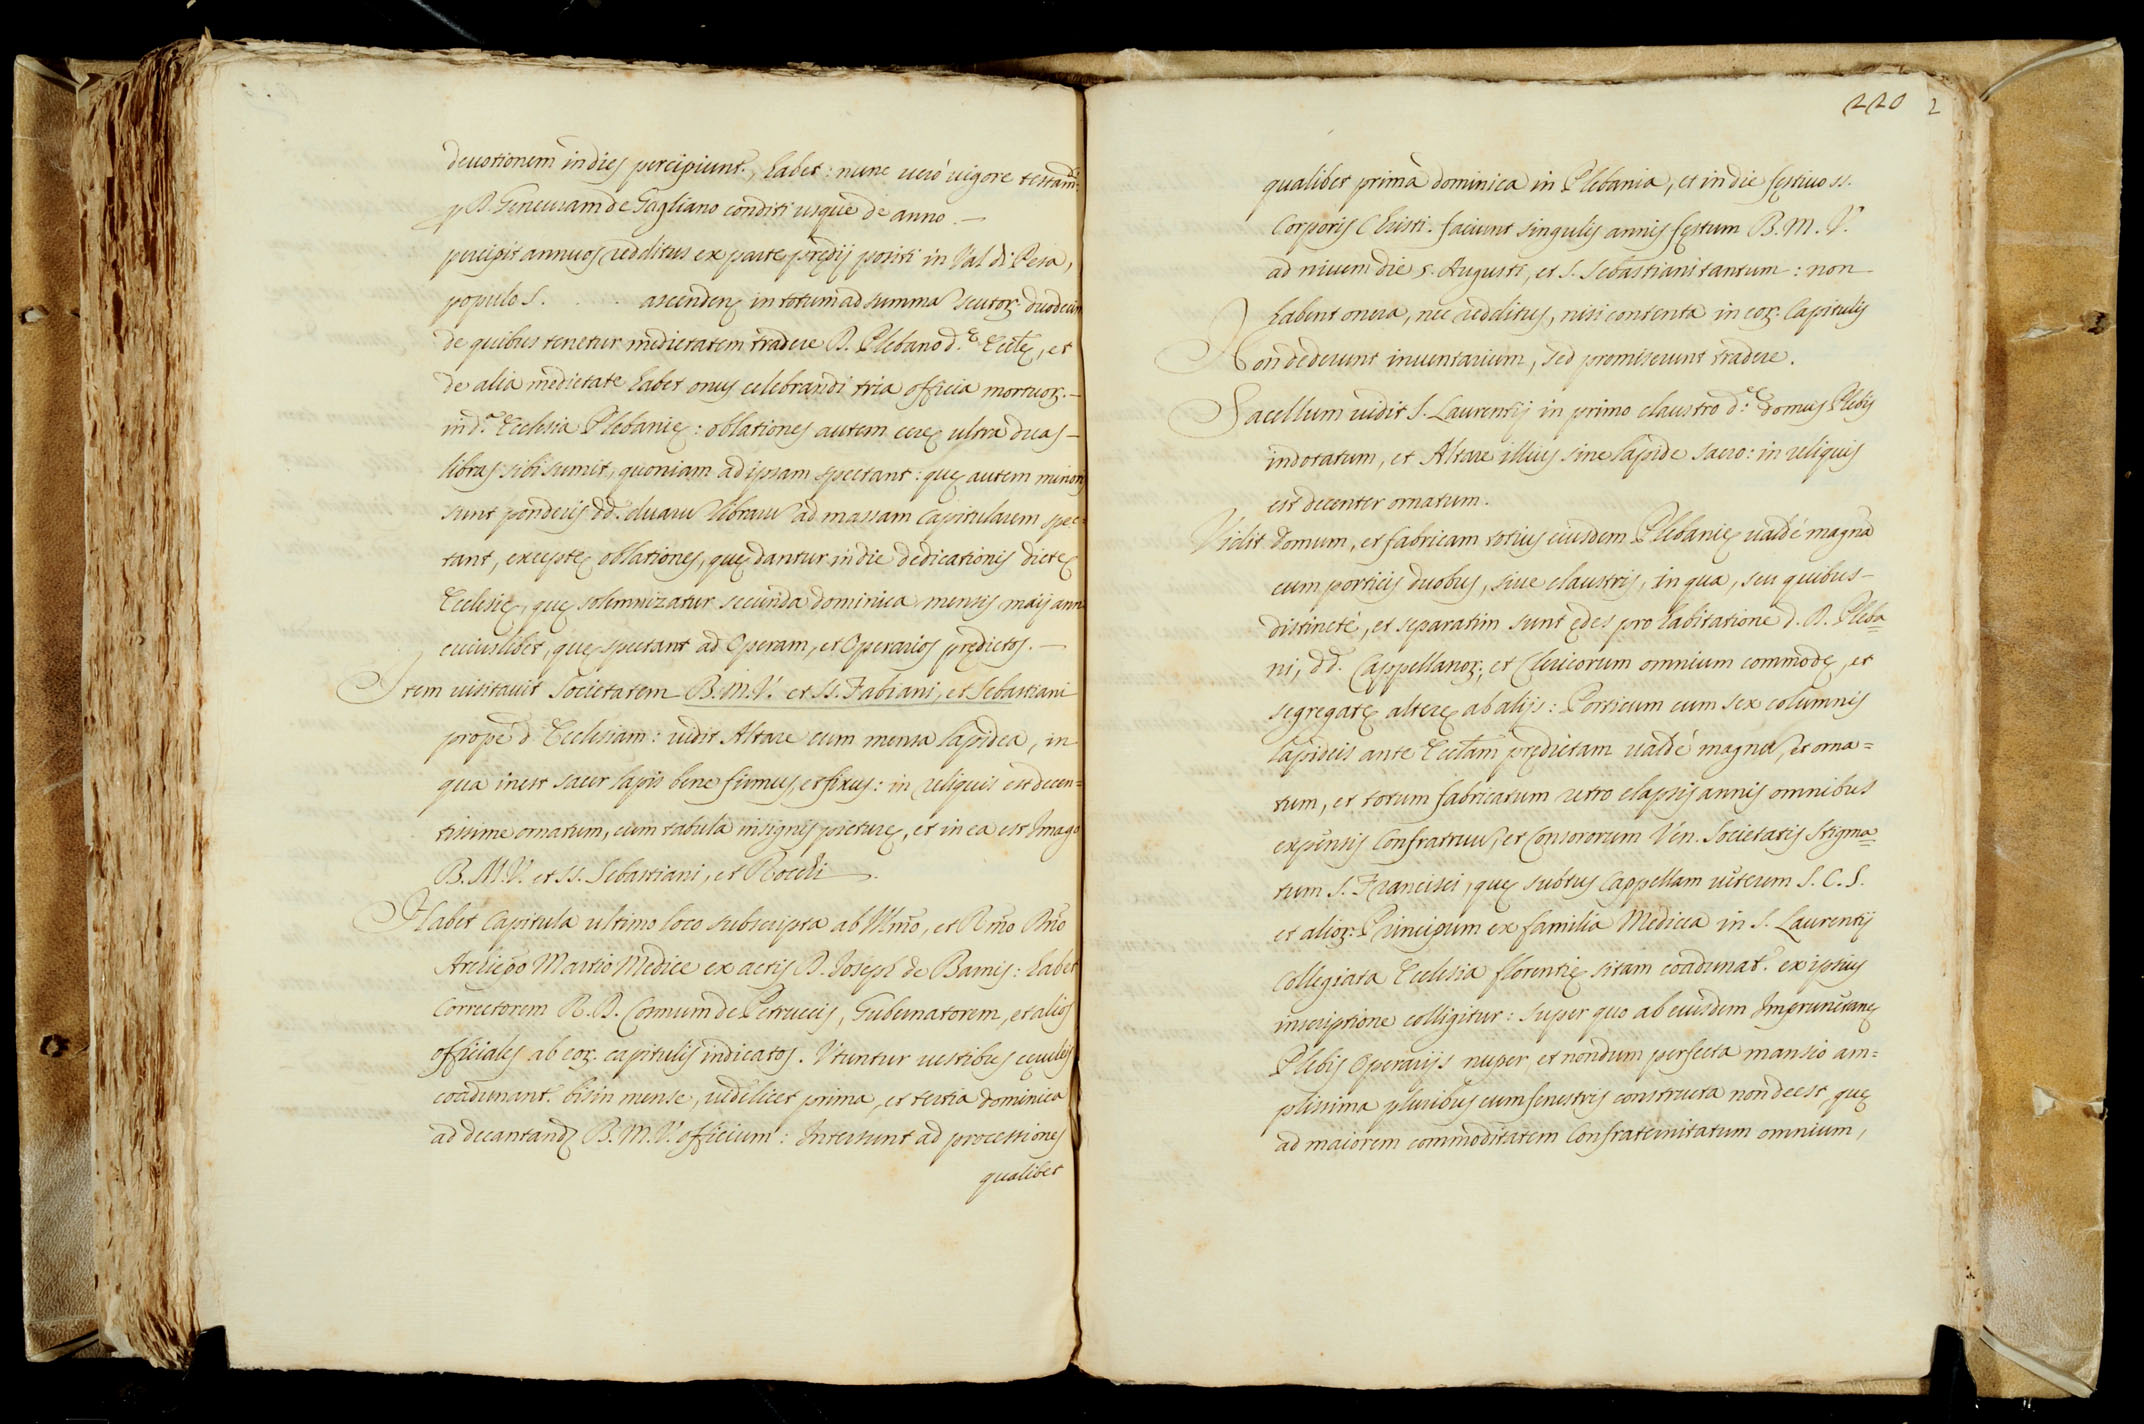 deuotionem in dies percipiunt., habet: nunc uerò uigore testam.ti
p D. Geneuram de Gagliano conditi usque de anno. —
percipit annuos redditus ex parte prędij positi in Val di Pesa,
populo S. . . . . ascendenę in totum ad summa scutoꝝ duodecim
de quibus tenetur medietatem tradere R. Plebano d.ę Eccłę, et
de alia medietate habet onus celebrandi tria officia mortuoꝝ. —
in d.a Ecclesia Plebanię: oblationes autem cerę ultra duas —
libras sibi sumit, quoniam ad ipsam spectant: quę autem minoris
sunt ponderis dd. duaru libraru ad massam Capitularem spec=
tant, exceptę oblationes, quę dantur in die dedicationis dictę
Ecclesię, quę solemnizatur secunda dominica mensis maij anni
cuiuslibet, quę spectant ad Operam, et Operarios prędictos. —
Item uisitauit Societatem B. M. V. et SS. Fabiani, et Sebastiani
propè d. Ecclesiam: uidit Altare cum mensa lapidea, in
qua inest sacer lapis bene firmus, et fixus: in reliquis est decen=
tissime ornatum, cum tabula insignis picturę, et in ea est Imago
B. M. V. et SS. Sebastiani, et Rocchi.
Habet Capitula ultimo loco subscripta ab Illmo, et Rmo Dno
Archiepo Martio Medice ex actis D. Joseph de Barnis: habet
Correctorem R. D. Connum de Petruccis, Gubernatorem, et alios
officiales ab eoꝝ. capitulis indicatos. Vtuntur uestibus cęrulis
coadunant. bis in mense, uidelicet prima, et tertia dominica
ad decantandꝝ B. M. V. officium: Intersunt ad processiones
qualibet
220 2
qualibet prima dominica in Plebania, et in die festiuo SS.
Corporis Christi. faciunt singulis annis festum B. M. V.
ad niuem die 5. Augusti, et S. Sebastiani tantum: non
habent onera, nec redditus, nisi contenta in eoꝝ. Capitulis
Non dederunt inuentarium, sed promiserunt tradere.
Sacellum uidit S. Laurentij in primo claustro d.ę domus Plebis
indotatum, et Altare illius sine lapide sacro: in reliquis
est decenter ornatum.
Vidit domum, et fabricam totius eiusdem Plebanię ualdé magna
cum porticis duobus, siue claustris, in qua, seu quibus —
distincté, et separatim sunt ędes pro habitatione d. R. Pleba=
ni, dd. Cappellanoꝝ. et Clericorum omnium commodę, et
segregatę alterę ab alijs: Porticum cum sex columnis
lapideis ante Eccłam prędictam ualdé magnu, et orna=
tum, et totum fabricatum retro elapsis annis omnibus
expensis Confratruu, et Consororum Ven. Societatis Stigma=
tum S. Francisci, quę subtus Cappellam ueterum S. C. S.
et alioꝝ. Principum ex familia Medicea in S. Laurentij
Collegiata Ecclesia florentię sitam coadunat. ex ipsius
inscriptione colligitur: super quo ab eiusdem Imprunetanę
Plebis Operarijs nuper et nondum perfecta mansio am=
plissima pluribus cum fenestris constructa non deest, quę
ad maiorem commoditatem Confraternitatum omnium,